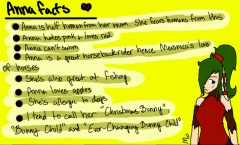 Anna Facts
Anna is half human from her mum. She fears humans from this
Anna hates pink & loves red
Anna can't swim
Anna is a great horseback rider hence Meomori's love
of horses
She's also great at Fishing
Anna loves apples
She's allergic to dogs
I tend to call her "Christmas Bunny"
"Bunny Child" and "Ever-Changing Bunny Child"